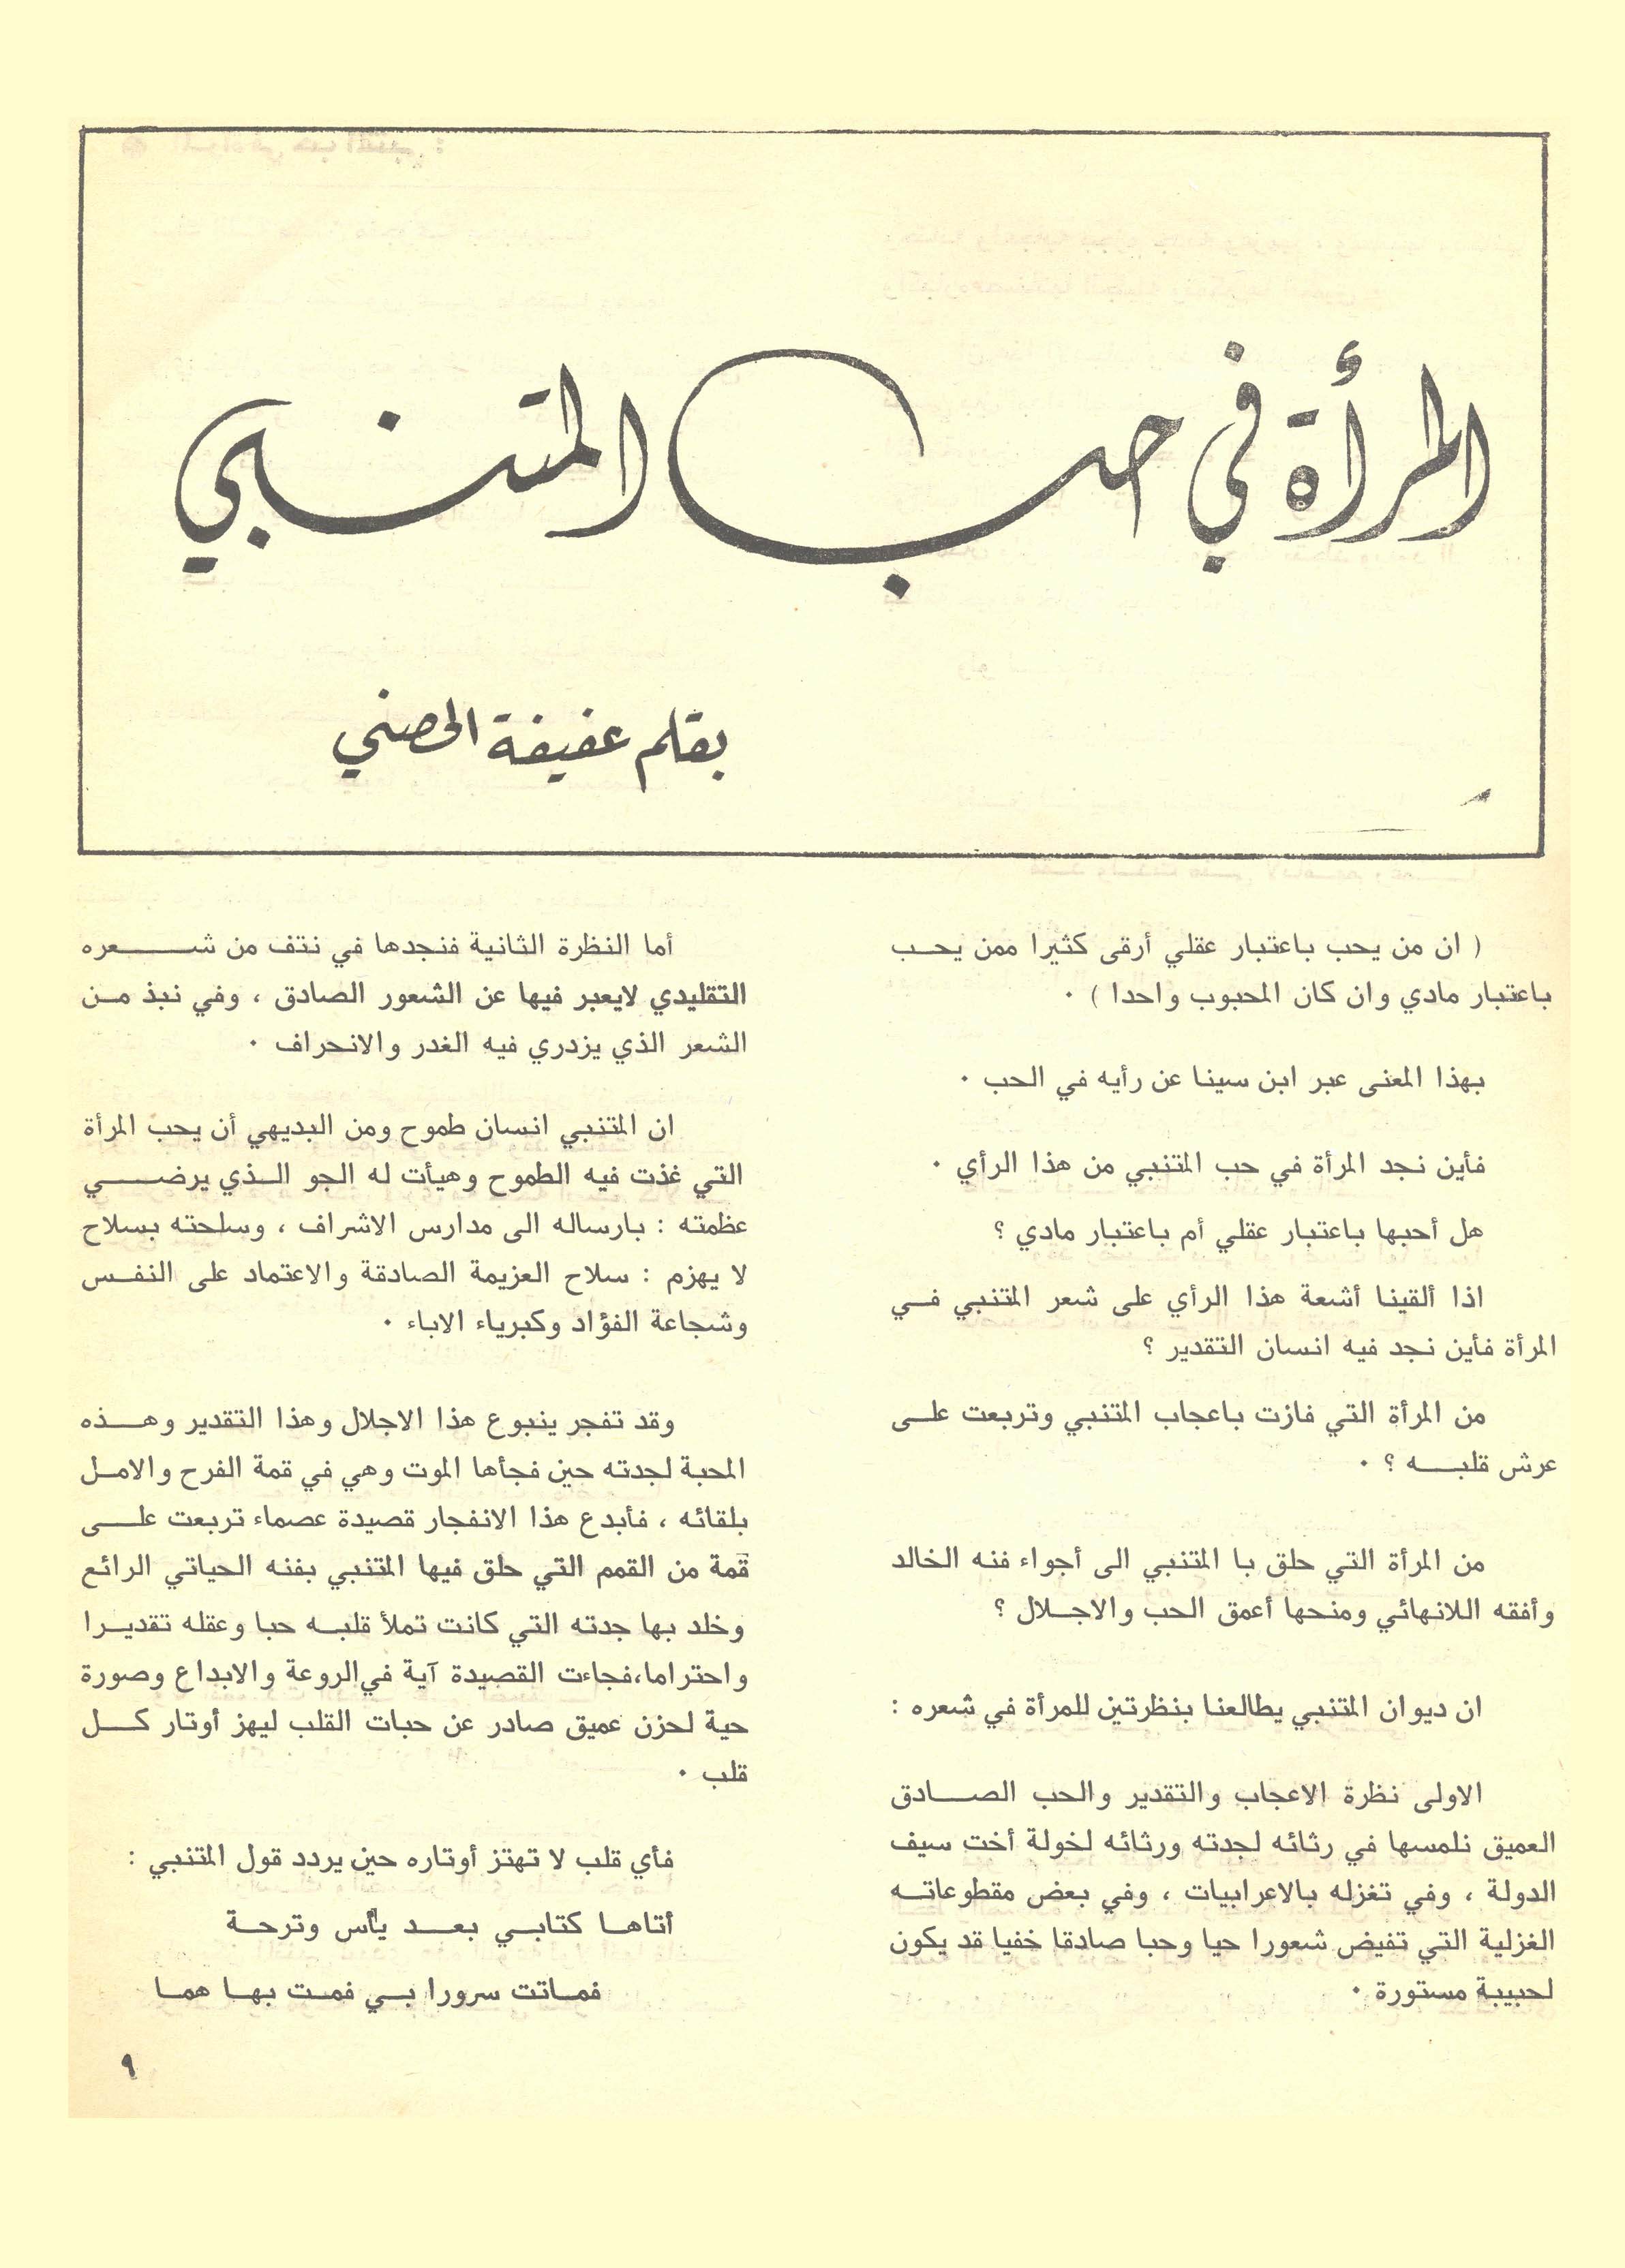 المرأة في حب المتنبي
بقلم عفيفة الحصني
( ان من يحب باعتبار عقلي أرقى كثيرا ممن يحب
باعتبار مادي وان كان المحبوب واحدا ) ٠
بهذا المعنى عبر ابن سينا عن رأيه في الحب ٠
فأين نجد المرأة في حب المتنبي من هذا الرأي ٠
هل أحبها باعتبار عقلي أم باعتبار مادي ؟
اذا ألقينا أشعة هذا الرأي على شعر المتنبي في
المرأة فأين نجد فيه انسان التقدير ؟
من المرأة التي فازت باعجاب المتنبي وتربعت على
عرش قلبه ؟ ٠
من المرأة التي حلق با المتنبي الى أجواء فنه الخالد
وأفقه اللانهائي ومنحها أعمق الحب والاجلال ؟
ان ديوان المتنبي يطالعنا بنظرتين للمرأة في شعره :
الاولى نظرة الاعجاب والتقدير والحب الصادق
العميق نلمسها في رثائه لجدته ورثائه لخولة أخت سيف
الدولة ، وفي تغزله بالاعرابيات ، وفي بعض مقطوعاته
الغزلية التي تفيض شعورا حيا وحبا صادقا خفيا قد يكون
لحبيبة مستورة ٠
أما النظرة الثانية فنجدها في نتف من شعره
التقليدي لايعبر فيها عن الشعور الصادق ، وفي نبذ من
الشعر الذي يزدري فيه الغدر والانحراف ٠
ان المتنبي انسان طموح ومن البديهي أن يحب المرأة
التي غذت فيه الطموح وهيأت له الجو الذي يرضي
عظمته : بارساله الى مدارس الاشراف ، وسلحته بسلاح
لا يهزم : سلاح العزيمة الصادقة والاعتماد على النفس
وشجاعة الفؤاد وكبرياء الاباء ٠
وقد تفجر ينبوع هذا الاجلال وهذا التقدير وهذه
المحبة لجدته حين فجأها الموت وهي في قمة الفرح والامل
بلقائه ، فأبدع هذا الانفجار قصيدة عصماء تربعت على
قمة من القمم التي حلق فيها المتنبي بفنه الحياتي الرائع
وخلد بها جدته التي كانت تملأ قلبه حبا وعقله تقديرا
واحتراما،فجاءت القصيدة آية في الروعة والابداع وصورة
حية لحزن عميق صادر عن حبات القلب ليهز أوتار كل
قلب ٠
فأي قلب لا تهتز أوتاره حين يردد قول المتنبي :
أتاها كتابي بعد يأس وترحة
فماتت سرورا بي فمت بها هما
٩